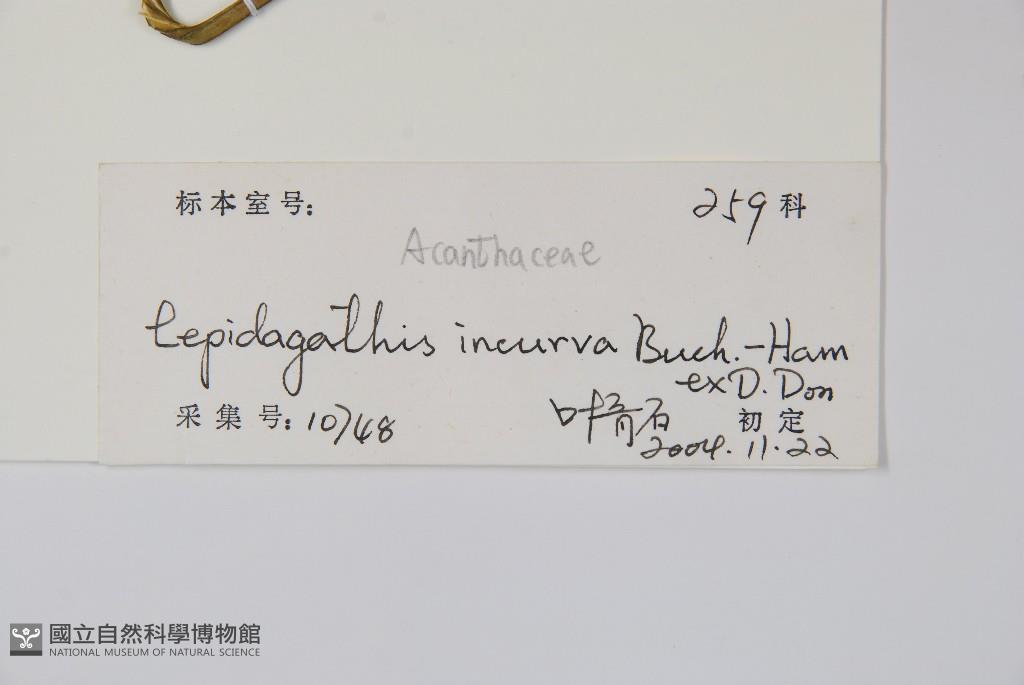 标本室号： 259科
Acanthaceae
Lepidagathis incurva Buch.-Ham
ex D. Don
采集号：10748 叶育石 初定
2004.11.22
國立自然科學博物館
NATIONAL MUSEUM OF NATURAL SCIENCE